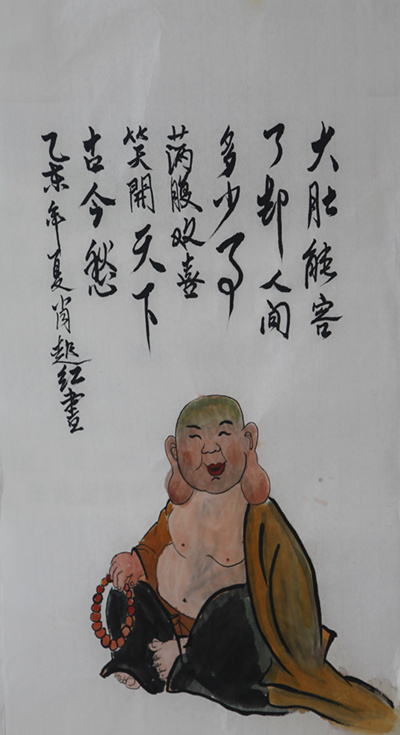 大肚能容
了却人间
多少事
满腹欢喜
笑開天下
古今愁
乙亥年夏肖红